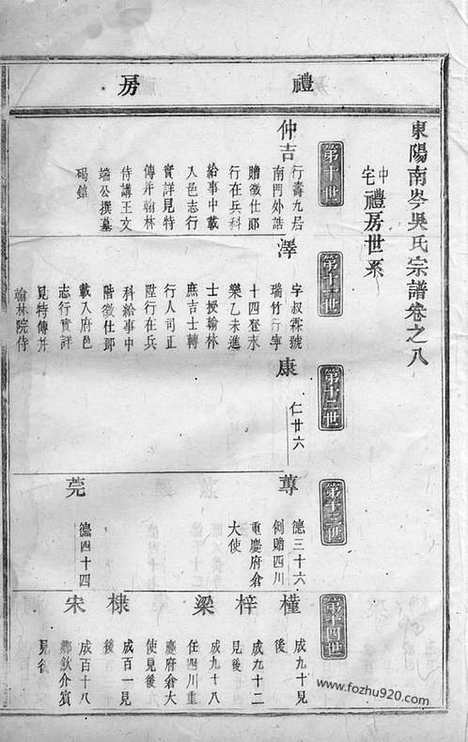 禮房
東陽南岑吳氏宗譜卷之八
中宅禮房世系
第十世
第十一世
第十二世
第十三世
第十四世
仲吉
行壽九居
南門外誥
贈徵仕郎
行在兵科
給事中載
入邑志行
實詳見特
傳并翰林
侍講王文
端公撰墓
碣銘
澤
字叔霖號
瑞竹行寧
十四登永
樂乙未進
士授翰林
庶吉士轉
行人司正
陞行在兵
科給事中
階徵仕郎
載入府邑
志行實詳
見特傳并
翰林院侍
康
仁廿六
尊
德三十六
例贈四川
重慶府倉
大使
莞
德四十四
槿
成九十見
後
梓
成九十二
見後
梁
成九十八
任四川重
慶府倉大
使見後
棣
成百一見
後
宋
成百十八
鄉飲介賓
見後
www.fozhu920.com